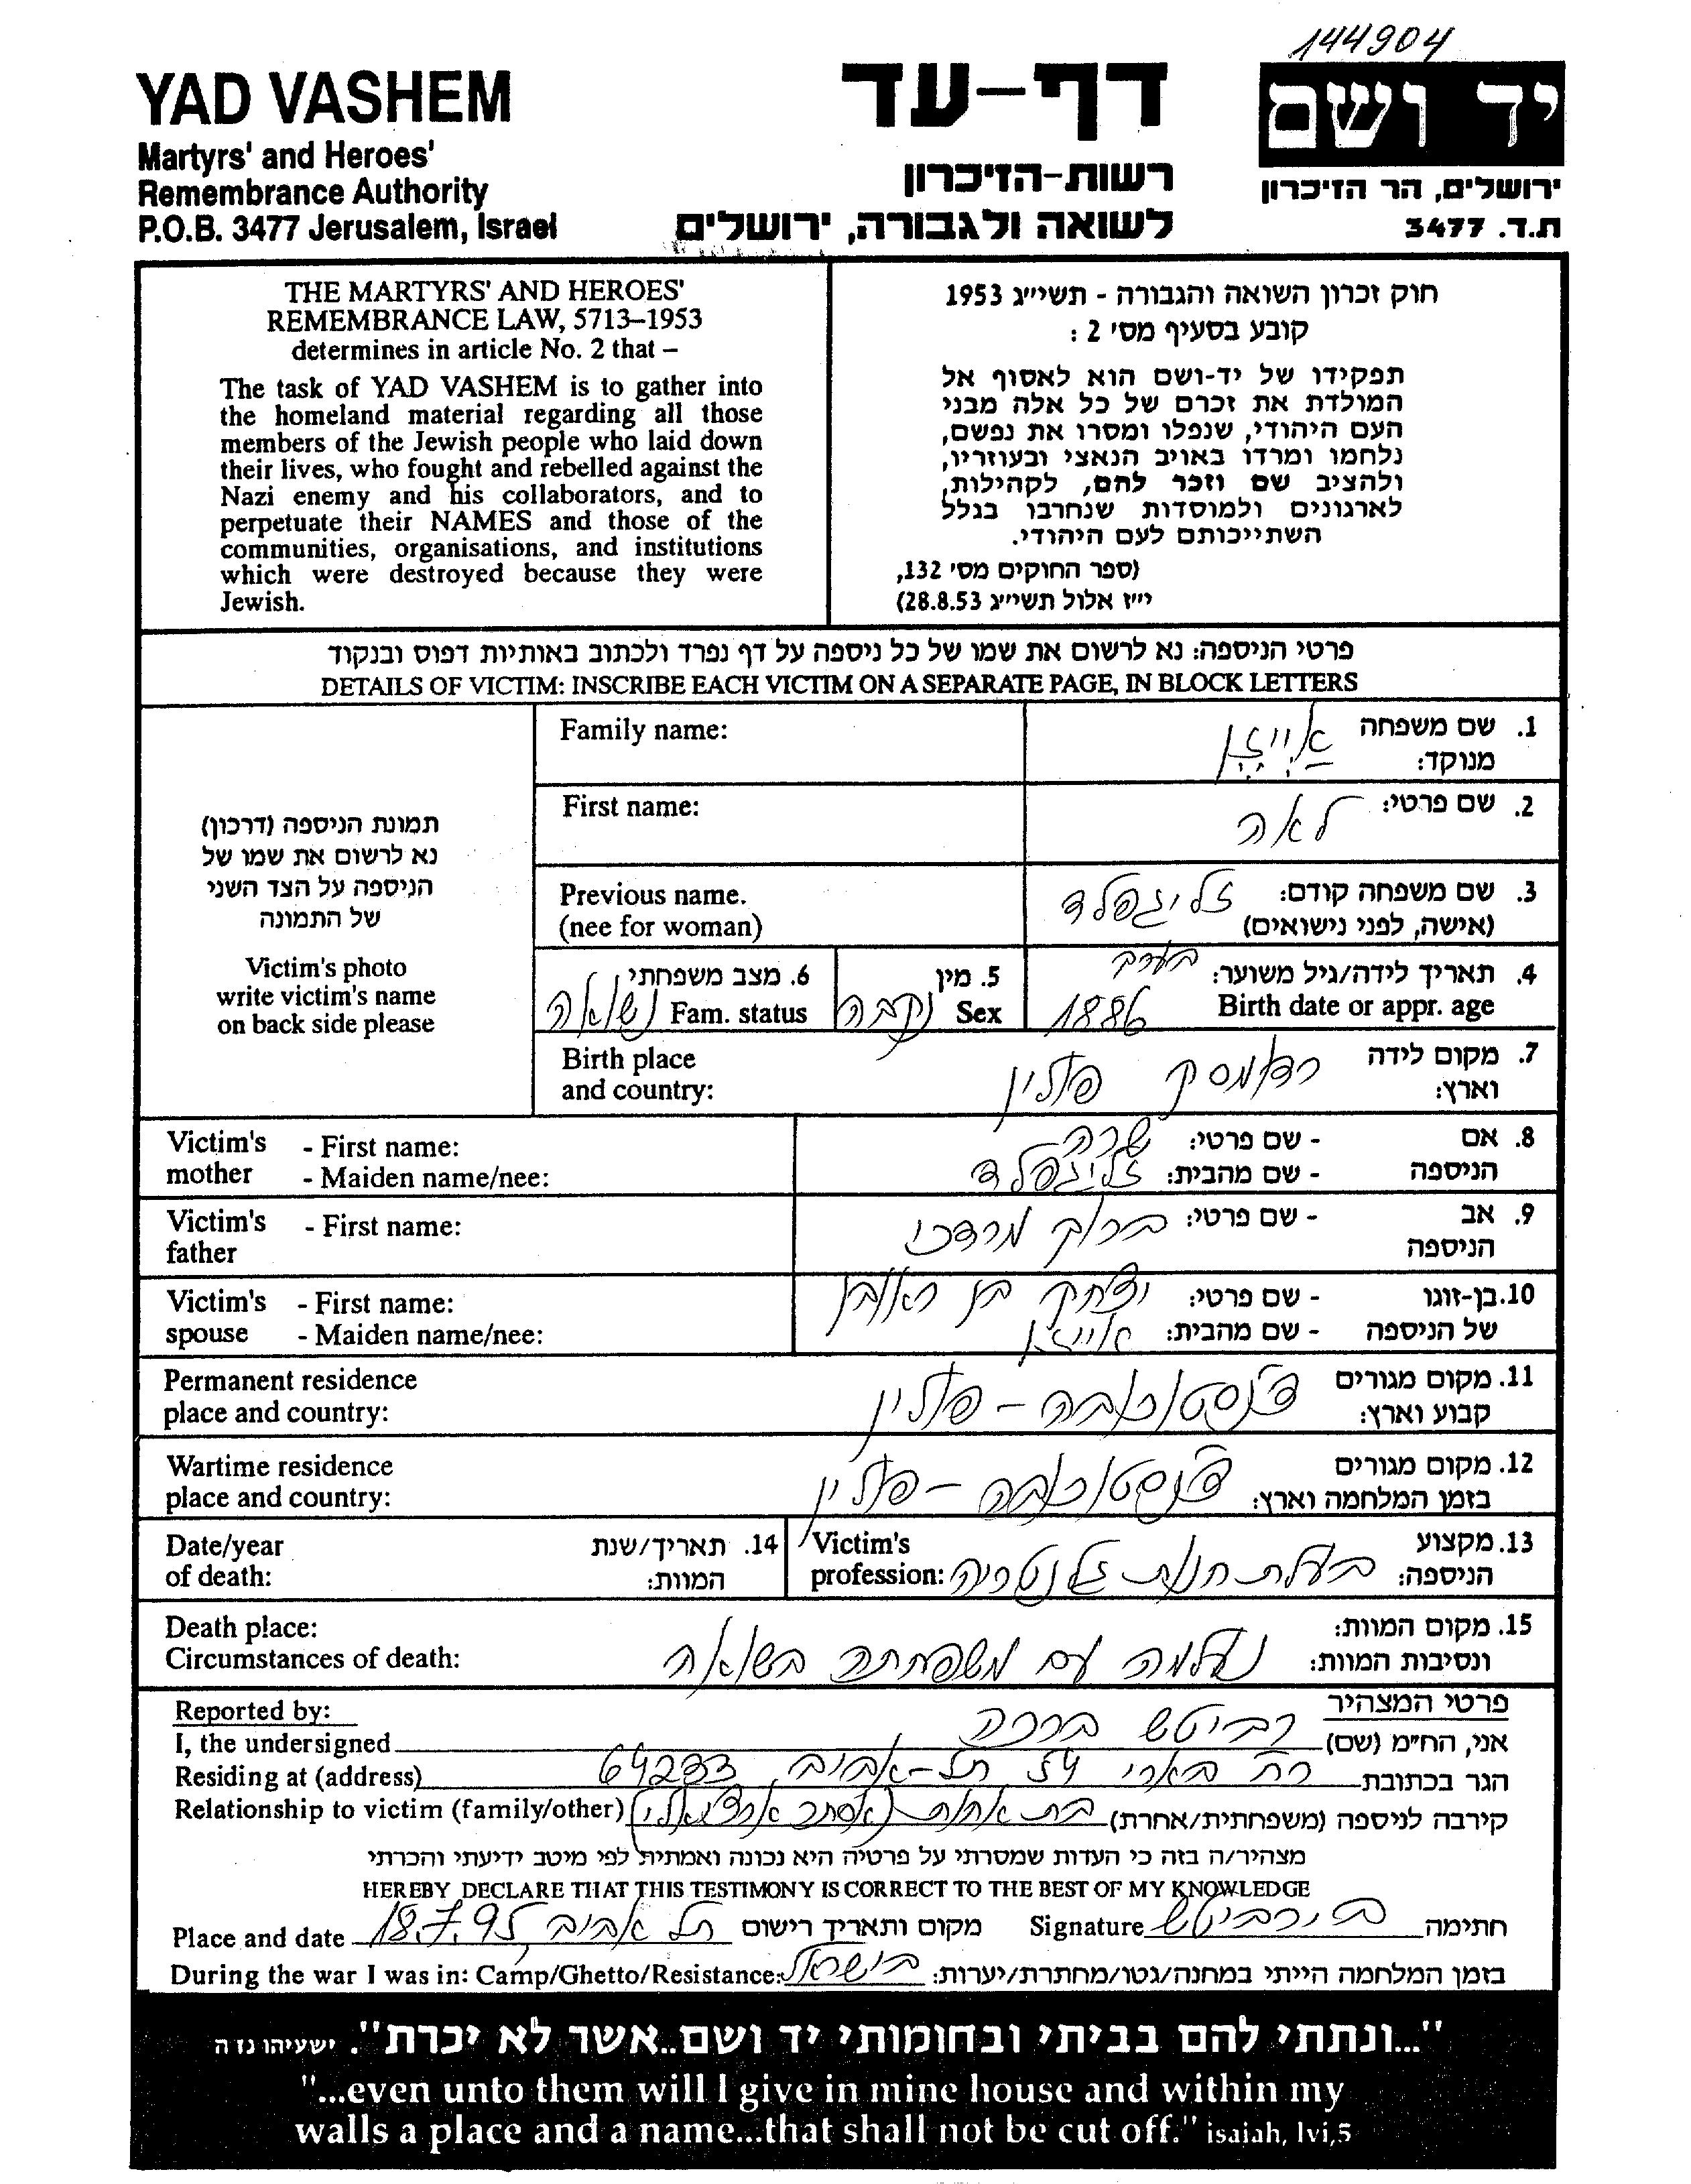 144904
YAD VASHEM
Martyrs' and Heroes'
Remembrance Authority
P.O.B. 3477 Jerusalem, Israel
דף-עד
רשות-הזיכרון
לשואה ולגבורה, ירושלים
יד ושם
ירושלים, הר הזיכרון
ת.ד. 3477
THE MARTYRS' AND HEROES'
REMEMBRANCE LAW, 5713–1953
determines in article No. 2 that –
The task of YAD VASHEM is to gather into
the homeland material regarding all those
members of the Jewish people who laid down
their lives, who fought and rebelled against the
Nazi enemy and his collaborators, and to
perpetuate their NAMES and those of the
communities, organisations, and institutions
which were destroyed because they were
Jewish.
חוק זכרון השואה והגבורה - תשי״ג 1953
קובע בסעיף מס׳ 2 :
תפקידו של יד-ושם הוא לאסוף אל
המולדת את זכרם של כל אלה מבני
העם היהודי, שנפלו ומסרו את נפשם,
נלחמו ומרדו באויב הנאצי ובעוזריו,
ולהציב שם וזכר להם, לקהילות,
לארגונים ולמוסדות שנחרבו בגלל
השתייכותם לעם היהודי.
(ספר החוקים מס׳ 132,
י״ז אלול תשי״ג 28.8.53)
פרטי הניספה: נא לרשום את שמו של כל ניספה על דף נפרד ולכתוב באותיות דפוס ובנקוד
DETAILS OF VICTIM: INSCRIBE EACH VICTIM ON A SEPARATE PAGE, IN BLOCK LETTERS
תמונת הניספה (דרכון)
נא לרשום את שמו של
הניספה על הצד השני
של התמונה
Victim's photo
write victim's name
on back side please
Family name:
1. שם משפחה
מנוקד:
אייזן
First name:
2. שם פרטי: לאה
Previous name.
(nee for woman)
3. שם משפחה קודם: זליגפלד
(אישה, לפני נישואים)
4. תאריך לידה/גיל משוער: בערך
Birth date or appr. age 1886
5. מין
Sex נקבה
6. מצב משפחתי
Fam. status נשואה
Birth place
and country:
7. מקום לידה
וארץ:
רדומסק פולין
Victim's mother - First name:
- Maiden name/nee:
8. אם הניספה - שם פרטי: שרה
- שם מהבית: זליגפלד
Victim's father - First name:
9. אב הניספה - שם פרטי: ברוך מרדכי
Victim's spouse - First name:
- Maiden name/nee:
10. בן-זוגו של הניספה - שם פרטי: יצחק בן ראובן
- שם מהבית: אייזן
Permanent residence
place and country:
11. מקום מגורים
קבוע וארץ:
צ'נסטוכובה - פולין
Wartime residence
place and country:
12. מקום מגורים
בזמן המלחמה וארץ:
צ'נסטוכובה - פולין
Date/year
of death:
14. תאריך/שנת
המוות:
Victim's
profession:
13. מקצוע
הניספה: בעלת חנות גלנטריה
Death place:
Circumstances of death:
15. מקום המוות:
ונסיבות המוות:
נעלמה עם משפחתה בשואה
Reported by:
פרטי המצהיר
I, the undersigned
אני, הח״מ (שם) רביטש ברכה
Residing at (address)
הגר בכתובת רח בארי 54 תל-אביב 64233
Relationship to victim (family/other)
קירבה לניספה (משפחתית/אחרת) בת אחות
מצהיר/ה בזה כי העדות שמסרתי על פרטיה היא נכונה ואמתית לפי מיטב ידיעתי והכרתי
HEREBY DECLARE THAT THIS TESTIMONY IS CORRECT TO THE BEST OF MY KNOWLEDGE
Place and date 18.7.95 תל אביב מקום ותאריך רישום
Signature ב. רביטש חתימה
During the war I was in: Camp/Ghetto/Resistance:
בזמן המלחמה הייתי במחנה/גטו/מחתרת/יערות: בישראל
"...ונתתי להם בביתי ובחומותי יד ושם..אשר לא יכרת". ישעיהו נו ה
"...even unto them will I give in mine house and within my
walls a place and a name...that shall not be cut off." isaiah, lvi,5